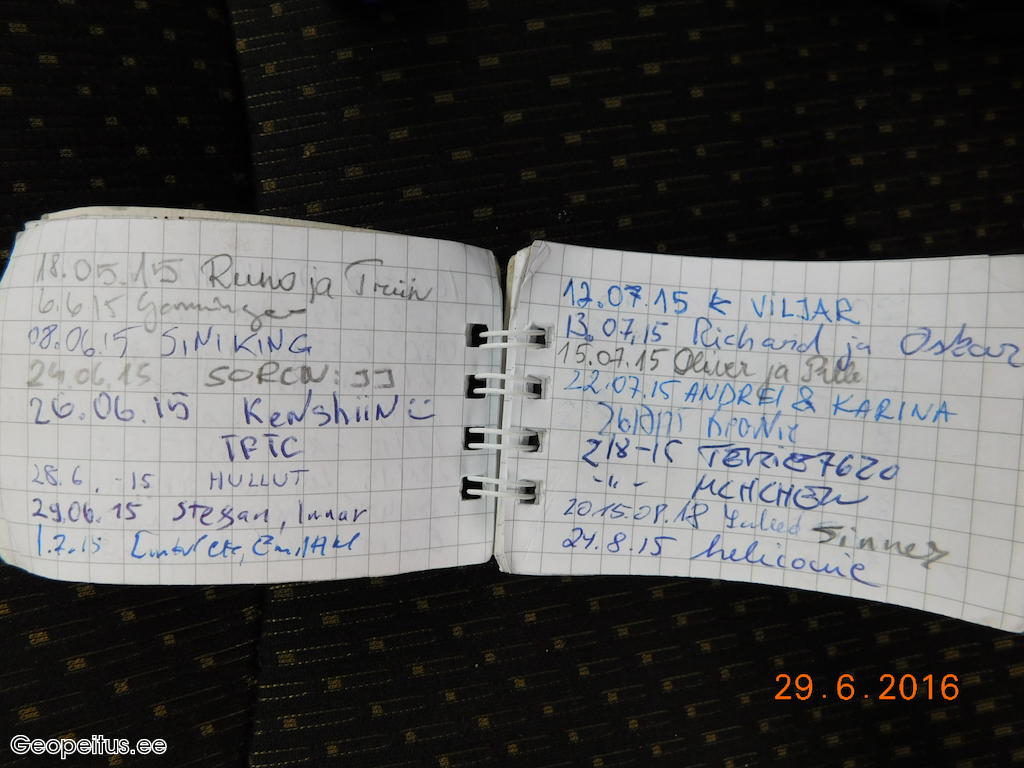 18.05.15 Runo ja Triin
6.6.15
08.06.15 SINIKING
24.06.15 SORCN:JJ
26.06.15 Kenshiin
TFTC
28.6. -15 HULLUT
29.06.15 Steffan, Innar
1.7.15
12.07.15 K VILJAR
13.07.15 Richard ja Oskar
15.07.15 Oliver ja Pille
22.07.15 ANDREI & KARINA
2/8-15 TERJE7620
-"-
2015.08.18 Sinner
24.8.15 helicowie
29.6.2016
Geopeitus.ee